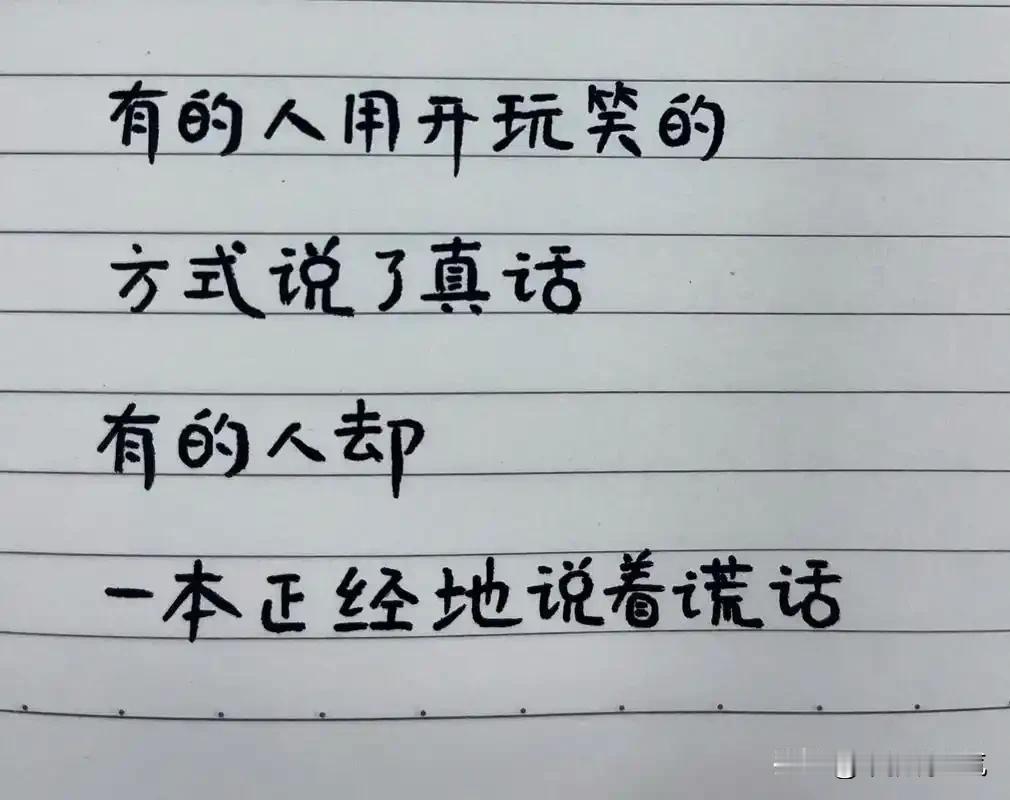 有的人用开玩笑的
方式说了真话
有的人却
一本正经地说着谎话